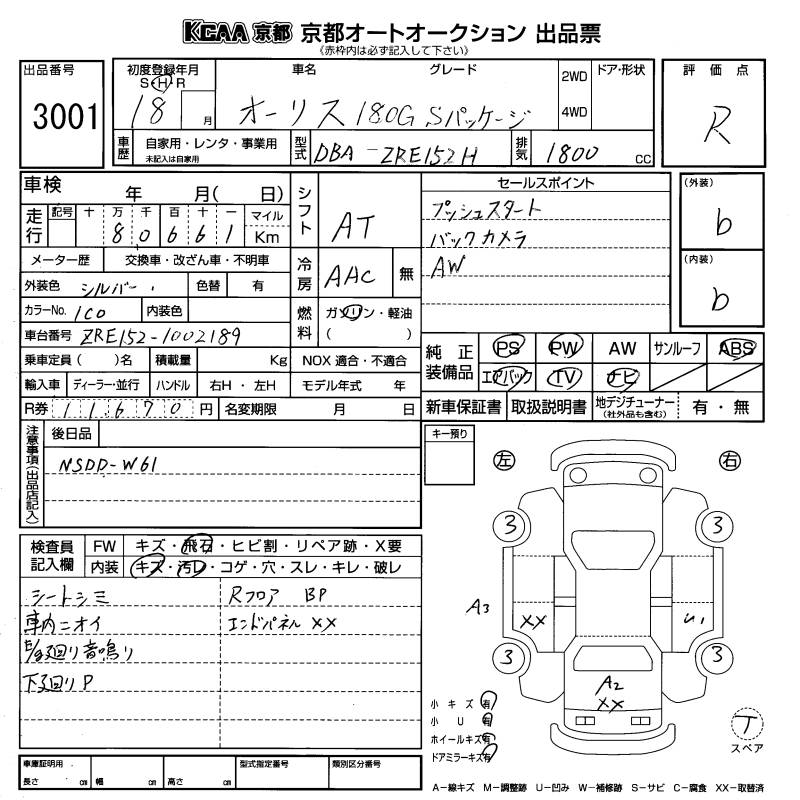 KCAA 京都 京都オートオークション 出品票
《赤枠内は必ず記入して下さい》
出品番号
3001
初度登録年月
S H R
18 月
車名
グレード
オーリス 180G Sパッケージ
2WD
4WD
ドア・形状
評価点
R
車歴
自家用・レンタ・事業用
未記入は自家用
型式
DBA-ZRE152H
排気
1800 cc
車検 年 月( 日)
走行
記号 十 万 千 百 十 一 マイル
8 0 6 6 1 Km
メーター歴 交換車・改ざん車・不明車
外装色 シルバー 色替 有
カラーNo. 1C0 内装色
車台番号 ZRE152-1002189
乗車定員 ( )名 積載量 Kg
輸入車 ディーラー・並行 ハンドル 右H・左H
R券 11670 円 名変期限 月 日
シフト
AT
冷房
AAC 無
燃料
ガソリン・軽油
( )
NOX 適合・不適合
モデル年式 年
セールスポイント
プッシュスタート
バックカメラ
AW
(外装)
b
(内装)
b
純正装備品
PS PW AW サンルーフ ABS
エアバック TV ナビ
新車保証書 取扱説明書 地デジチューナー 有・無
(社外品も含む)
注意事項(出品店記入)
後日品
NSDD-W61
キー預り
左
右
検査員記入欄
FW キズ・飛石・ヒビ割・リペア跡・X要
内装 キズ・汚レ・コゲ・穴・スレ・キレ・破レ
シートシミ
車内ニオイ
廻り音鳴り
下廻りP
Rフロア BP
エンドパネル XX
3
3
A3
XX
3
3
A2
XX
小キズ 有
小U 有
ホイールキズ 有
ドアミラーキズ 有
T
スペア
車庫証明用
長さ cm 幅 cm 高さ cm
型式指定番号
類別区分番号
A-線キズ M-調整跡 U-凹み W-補修跡 S-サビ C-腐食 XX-取替済